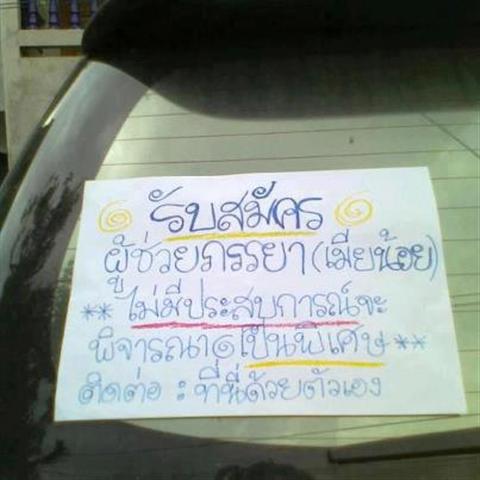 รับสมัคร
ผู้ช่วยภรรยา (เมียน้อย)
** ไม่มีประสบการณ์จะ
พิจารณาเป็นพิเศษ **
ติดต่อ : ที่นี่ด้วยตัวเอง